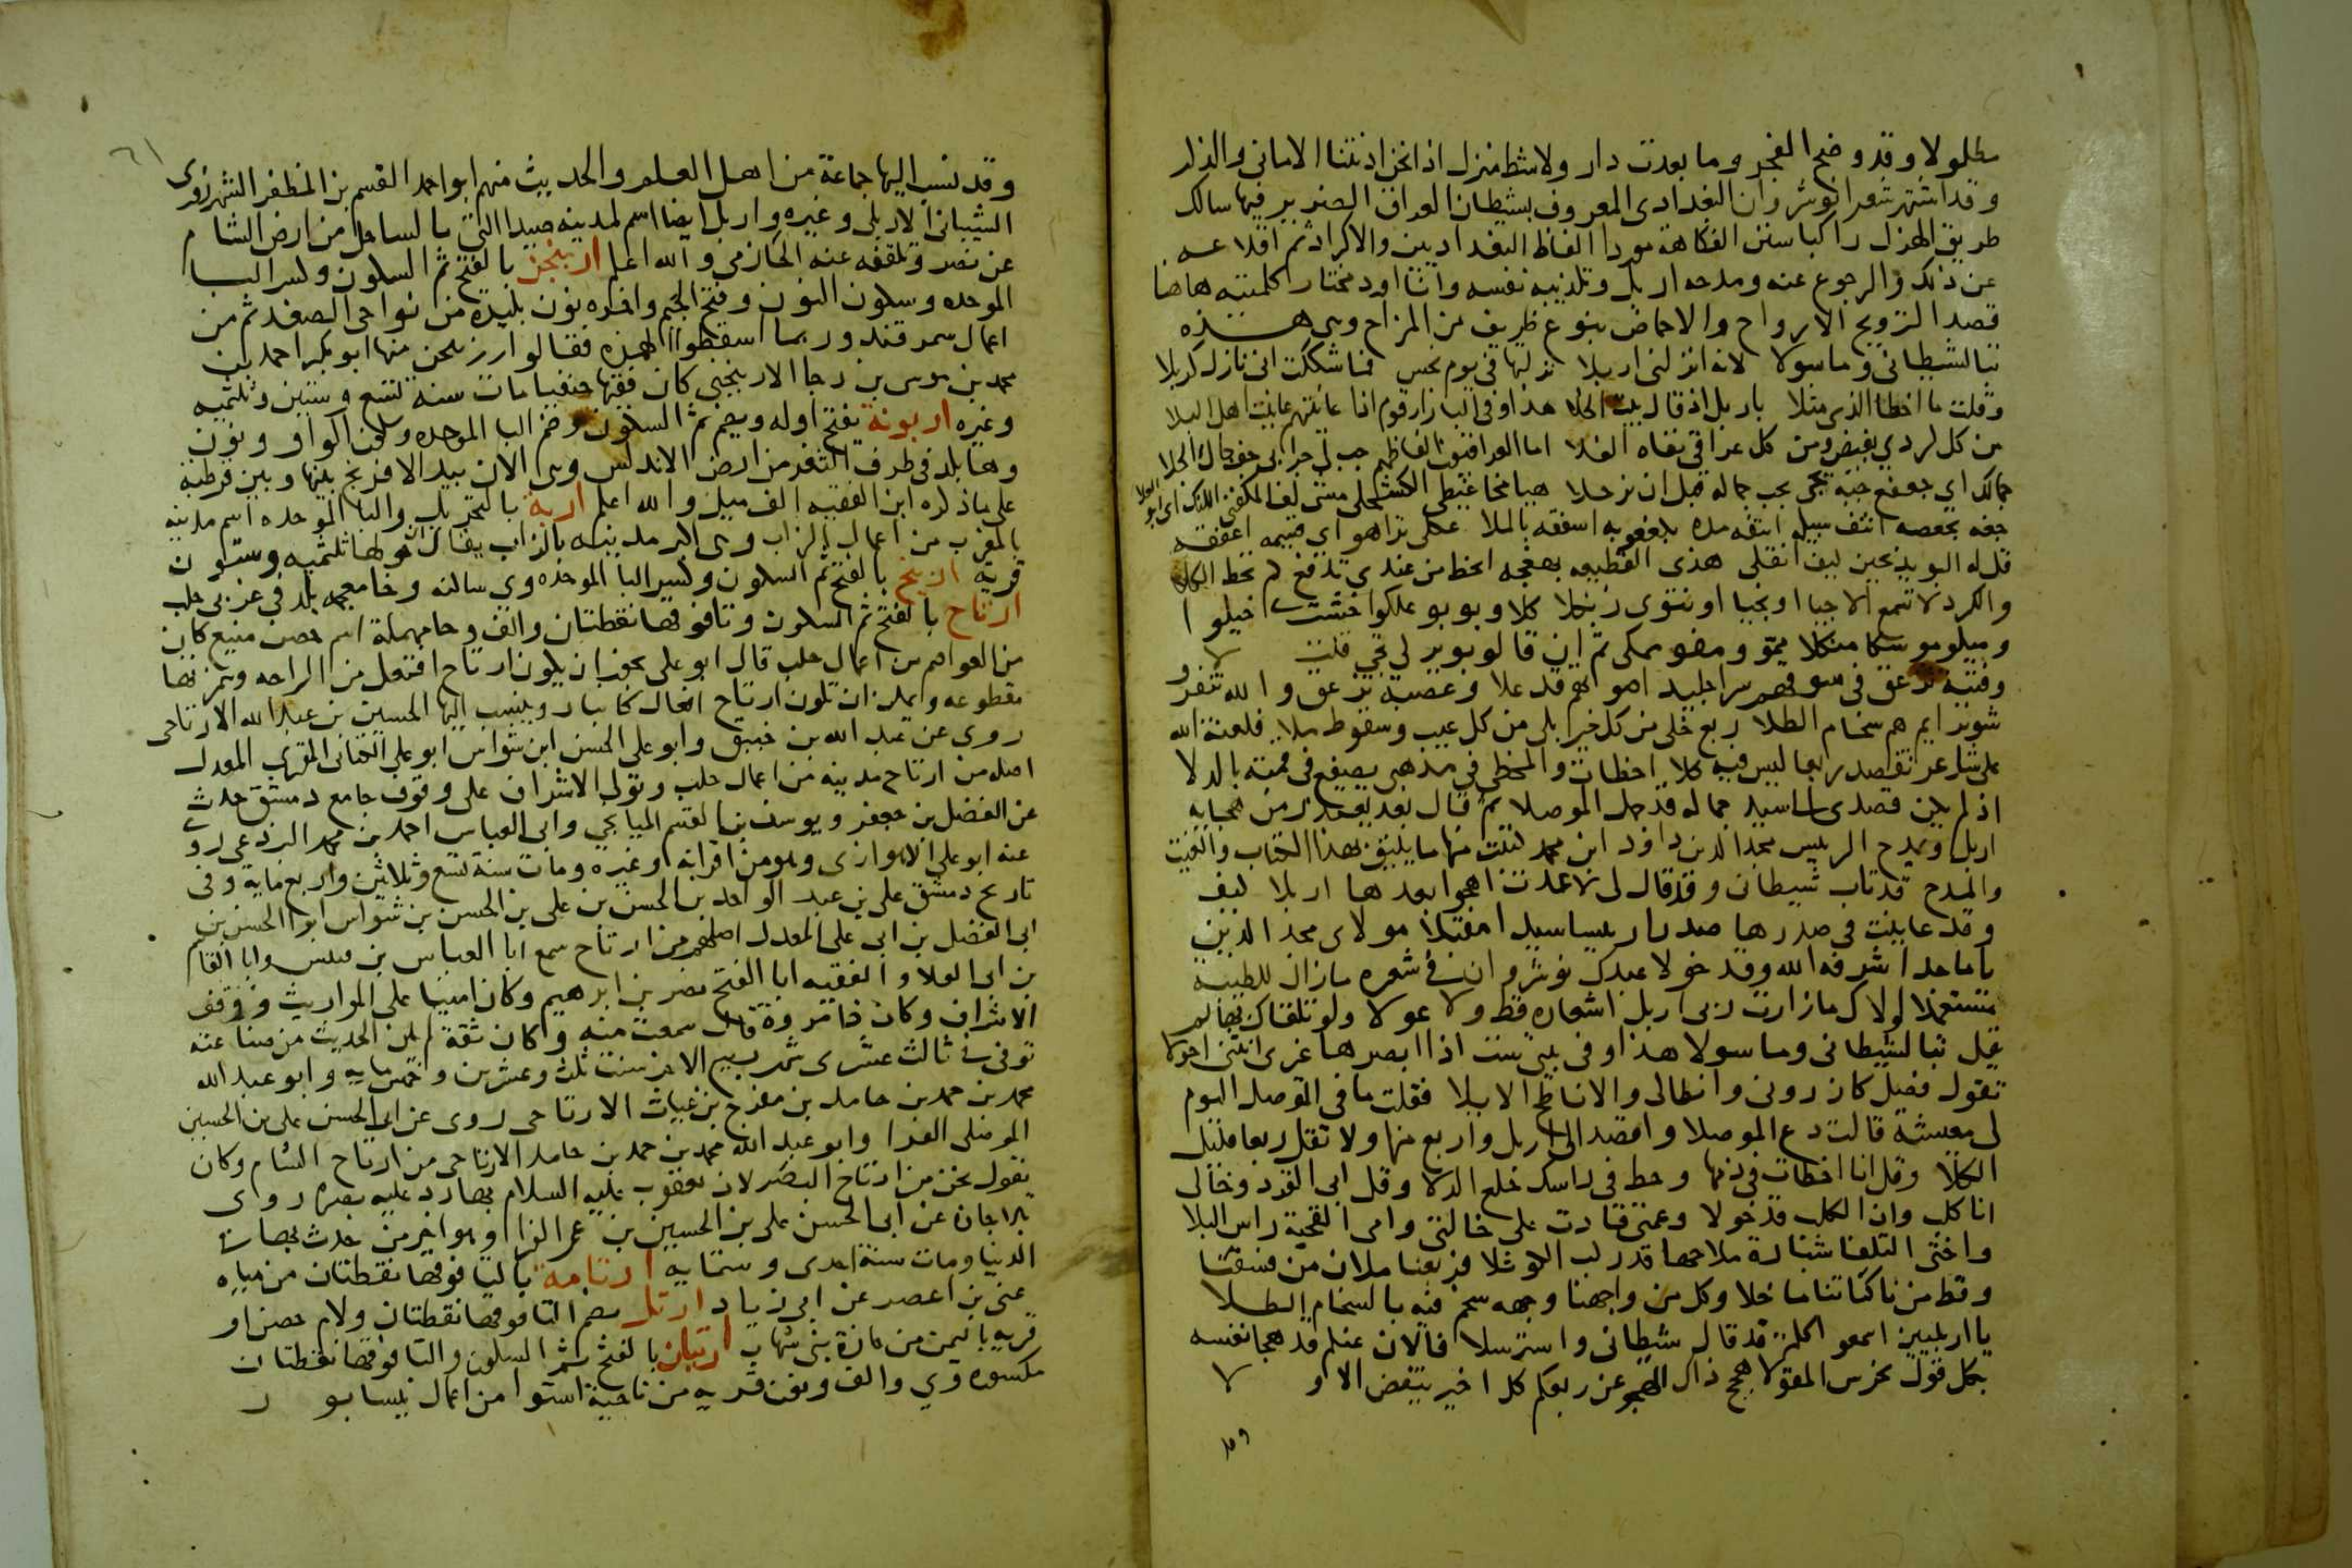 مطلولا وقد وضح الفجر وما بعدت دار ولا شط منزل اذا نحن ادنتنا الاماني والذكر
وقد اشتهر شعر انوشروان البغدادي المعروف بشيطان العراق الضرير فيها سالك
طريق الهزل راكبا سنن الفكاهة موردا الفاظ البغداديين والاكراد ثم اقلاعه
عن ذلك والرجوع عنه ومدحه اربل وتكذيبه نفسه وانا اورد مختار كلمتيه هاهنا
قصدا لترويح الارواح والاحماض بنوع ظريف من المزاح وهي هذه
تبا لشيطاني وما سولا لانه انزلني اربلا نزلتها في يوم نحس فما شككت اني نازل كربلا
وقلت ما اخطا الذي مثلا باربل اذ قال بيت الخلا هذا وفي البازار قوم اذا عاينتهم عاينت اهل البلا
من كل كردي بغيض ومن كل عراقي نفاه الغلا اما العراقيون الفاظهم جب لي جرابي جف جمال الجلا
جمالك اي جعفع جبه تجي يجب جماله قبل ان نرحلا هيا مخاعيطي الكشحلي مشي كف المكفني اللنك اي بو العلا
جفه بجعصه انتف سبيله انتفه مده بكعفويه اسفقه بالملا عكلي ترا هو اي قسمه اعفقه
قل له البويذبخين كيف انقلي هذي القطيعه بهفجه انحط من عندي تدفع كم تحط الكلا
والكرد لا تسمع الا جيا او نجيا او نتوى زنكلا كلا وبوبو علكوا خشت خيلوا
وميلو موسكا منكلا ممو ومقو ممكي ثم ان قالو بوبر لي تجي قلت لا
وفتية تزعق في سوقهم سرا جليد اصواتهم قد علا وعصبة تزعق والله تنفرو
شوتر ايم هم سخام الطلا ربع خلى من كل خير بلى من كل عيب وسقوط ملا فلعنة الله
على شاعر تقصد ربعا ليس فيه كلا اخطات والمخطي في مذهبي يصفع في قمته بالدلا
اذ لم يكن قصدي لسيد جماله قد جمل الموصلا ثم قال بعد يعتذر من هجايه
اربل ويمدح الرييس مجد الدين داود ابن محمد كتبت منها ما يليق بهذا الكتاب والقيت
والمدح قد تاب شيطاني وقد قال لي لا عدت اهجو بعدها اربلا كيف
وقد عاينت في صدرها صدرا رييسا سيدا مقبلا مولاي مجد الدين
يا ماجدا شرفه الله وقد خولا عبدك نوشروان في شعره ما زال للطيبه
مستعملا لولاك ما زارت ربى اربل اشعاره قط ولا عولا ولو تلقاك بها لم
يقل تبا لشيطاني وما سولا هذا وفي بيتي ست اذا ابصرها غيري انثنى احولا
تقول فصل كان روني وانطالي والاناطح الايلا فقلت ما في الموصل اليوم
لي معيشة قالت دع الموصلا واقصد الى اربل واربع بها ولا تقل ربعا قليل
الكلا وقل انا اخطات في ذمها وحط في راسك خلع الدلا وقل ابي القرد وخالي
انا كلب وان الكلب قد خولا وعمتي قادت على خالتي وامي القحبة راس البلا
واختي القلفا شبارة ملاحها قد ركب الكوثلا فربعنا ملان من فسقنا
وقط من ناكتنا ما خلا وكل من واجهنا وجهه سخم فيه بالسخام الطلا
يا اربليين اسمعو اكلمة قد قال شيطاني واسترسلا فالان عنكم قد هجا نفسه
بكل قول يخرس المقولا هيج ذاك الهجو عن ربعكم كل اخير ينقض الاو لا
وقد
٦١
وقد نسب اليها جماعة من اهل العلم والحديث منهم ابو احمد القسم بن المظفر الشهرزوري
الشيباني الاربلي وغيره واربل ايضا اسم لمدينه صيدا التي بالساحل من ارض الشام
عن نصر وتلقفه عنه الحازمي والله اعلم اربنجن بالفتح ثم السكون وكسر البا
الموحده وسكون النون وفتح الجيم واخره نون بليدة من نواحي الصغد ثم من
اعمال سمرقند وربما اسقطوا الهمزه فقالوا ربنجن منها ابو بكر احمد بن
محمد بن موسى بن رجا الاربنجني كان فقيها حنفيا مات سنه تسع وستين وثلثميه
وغيره اربونة بفتح اوله ويضم ثم السكون وضم البا الموحده وسكون الواو ونون
وها بلد في طرف الثغر من ارض الاندلس وهي الان بيد الافرنج بينها وبين قرطبة
على ما ذكره ابن الفقيه الف ميل والله اعلم اربة بالتحريك والبا الموحده اسم مدينه
بالمغرب من اعمال الزاب وهي اكبر مدينه بالزاب يقال ان حولها ثلثميه وستون
قرية اربيخ بالفتح ثم السكون وكسر البا الموحده وى ساكنه وخا معجمه بلد في غربي حلب
ارتاح بالفتح ثم السكون وتا فوقها نقطتان والف وحا مهملة اسم حصن منيع كان
من العواصم من اعمال حلب قال ابو علي يجوز ان يكون ارتاح افتعل من الراحه وهمزتها
مقطوعه ويمكن ان تكون ارتاح افعال كانبار وينسب اليها الحسين بن عبد الله الارتاحي
روى عن عبد الله بن خبيق وابو علي الحسن ابن شواس ابو علي الكناني المقري المعدل
اصله من ارتاح مدينه من اعمال حلب وتولى الاشراف على وقوف جامع دمشق حدث
عن الفضل بن جعفر ويوسف بن القسم الميانجي وابي العباس احمد بن محمد البرذعي روى
عنه ابو علي الاهوازي وهو من اقرانه وغيره ومات سنة تسع وثلاثين واربعمايه وفي
تاريخ دمشق علي بن عبد الواحد بن الحسن بن علي بن الحسن بن شواس ابو الحسن بن
ابي الفضل بن ابي علي المعدل اصلهم من ارتاح سمع ابا العباس بن قبيس وابا القاسم
بن ابي العلا والفقيه ابا الفتح نصر بن ابرهيم وكان امينا على المواريث ووقف
الاشراف وكان ذا مروة قال سمعت منه وكان ثقة لم يكن الحديث من صناعته
توفي في ثالث عشرى شهر ربيع الاخر سنت ثلث وعشرين وخمسمايه وابو عبد الله
محمد بن حمد بن حامد بن مفرج بن غياث الارتاحي روى عن ابي الحسن علي بن الحسين
الموصلي الفرا وابو عبد الله محمد بن حمد بن حامد الارتاحي من ارتاح الشام وكان
يقول نحن من ارتاح البصر لان يعقوب عليه السلام بها رد عليه بصره روى
بالاجازه عن ابي الحسن علي بن الحسين بن عمر الفرا وهو اخر من حدث بها في
الدنيا ومات سنة احدى وستمايه ارتامة بالتا فوقها نقطتان من مياه
غني بن اعصر عن ابي زياد ارتل بضم التا فوقها نقطتان ولام حصن او
قريه باليمن من حازة بني شهاب ارتيان بالفتح ثم السكون والتا فوقها نقطتان
مكسوره وي والف ونون قريه من ناحية استوا من اعمال نيسابور